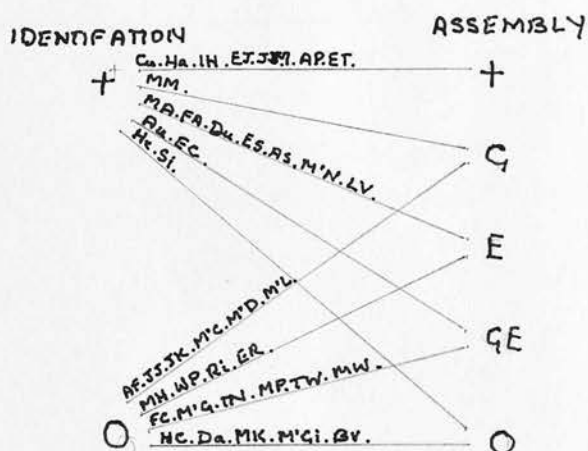 IDENTIFATION
ASSEMBLY
+
Cu. Ha. IH. EJ. JSM. AP. ET.
+
MM.
G
MA. FA. Du. ES. AS. M'N. LV.
Au. EC.
He. Si.
E
GE
AF. JJ. JK. M'C. M'D. M'L.
MH. WP. Ri. ER.
FC. M'G. IN. MP. TW. MW.
O
HC. Da. MK. M'Gi. BV.
O